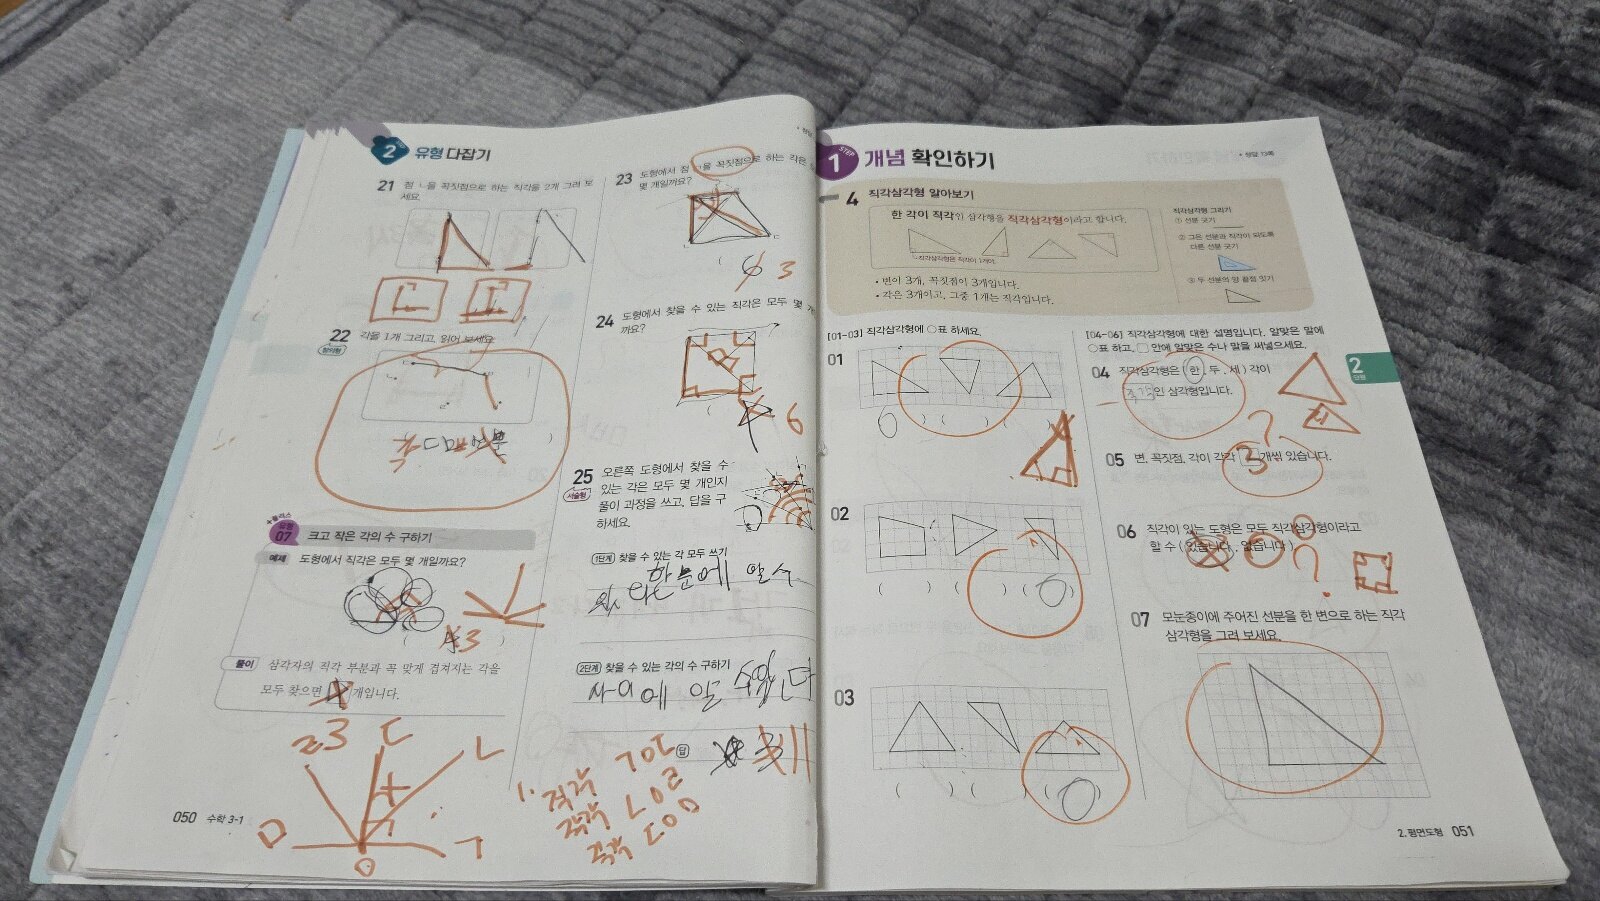 STEP 2 유형 다잡기
21 점 ㄴ을 꼭짓점으로 하는 직각을 2개 그려 보
세요.
22 각을 1개 그리고, 읽어 보세요.
창의형
+플러스
유형 07 크고 작은 각의 수 구하기
예제 도형에서 직각은 모두 몇 개일까요?
3
풀이 삼각자의 직각 부분과 꼭 맞게 겹쳐지는 각을
모두 찾으면 개입니다.
3 ㄷ ㄴ
ㄹ
ㅁ ㅇ ㄱ
050 수학 3-1
23 도형에서 점 ㄱ을 꼭짓점으로 하는 각은
몇 개일까요?
3
24 도형에서 찾을 수 있는 직각은 모두 몇 개
까요?
6
25 오른쪽 도형에서 찾을 수
서술형 있는 각은 모두 몇 개인지
풀이 과정을 쓰고, 답을 구
하세요.
1단계 찾을 수 있는 각 모두 쓰기
2단계 찾을 수 있는 각의 수 구하기
사이에 알 수
답
1. 직각 ㄱㅇㄷ
직각 ㄴㅇㄹ
직각 ㄷㅇㅁ
STEP 1 개념 확인하기
• 정답 13쪽
4 직각삼각형 알아보기
한 각이 직각인 삼각형을 직각삼각형이라고 합니다.
직각삼각형은 직각이 1개야.
• 변이 3개, 꼭짓점이 3개입니다.
• 각은 3개이고, 그중 1개는 직각입니다.
직각삼각형 그리기
① 선분 긋기
② 그은 선분과 직각이 되도록
다른 선분 긋기
③ 두 선분의 양 끝점 잇기
[01~03] 직각삼각형에 ○표 하세요.
01
( ) ( ) ( )
02
( ) ( ) ( )
03
( ) ( ) ( )
[04~06] 직각삼각형에 대한 설명입니다. 알맞은 말에
○표 하고, □ 안에 알맞은 수나 말을 써넣으세요.
04 직각삼각형은 ( 한 , 두 , 세 ) 각이
직각인 삼각형입니다.
05 변, 꼭짓점, 각이 각각 3 개씩 있습니다.
06 직각이 있는 도형은 모두 직각삼각형이라고
할 수 ( 있습니다 , 없습니다 ).
07 모눈종이에 주어진 선분을 한 변으로 하는 직각
삼각형을 그려 보세요.
2 단원
2. 평면도형 051